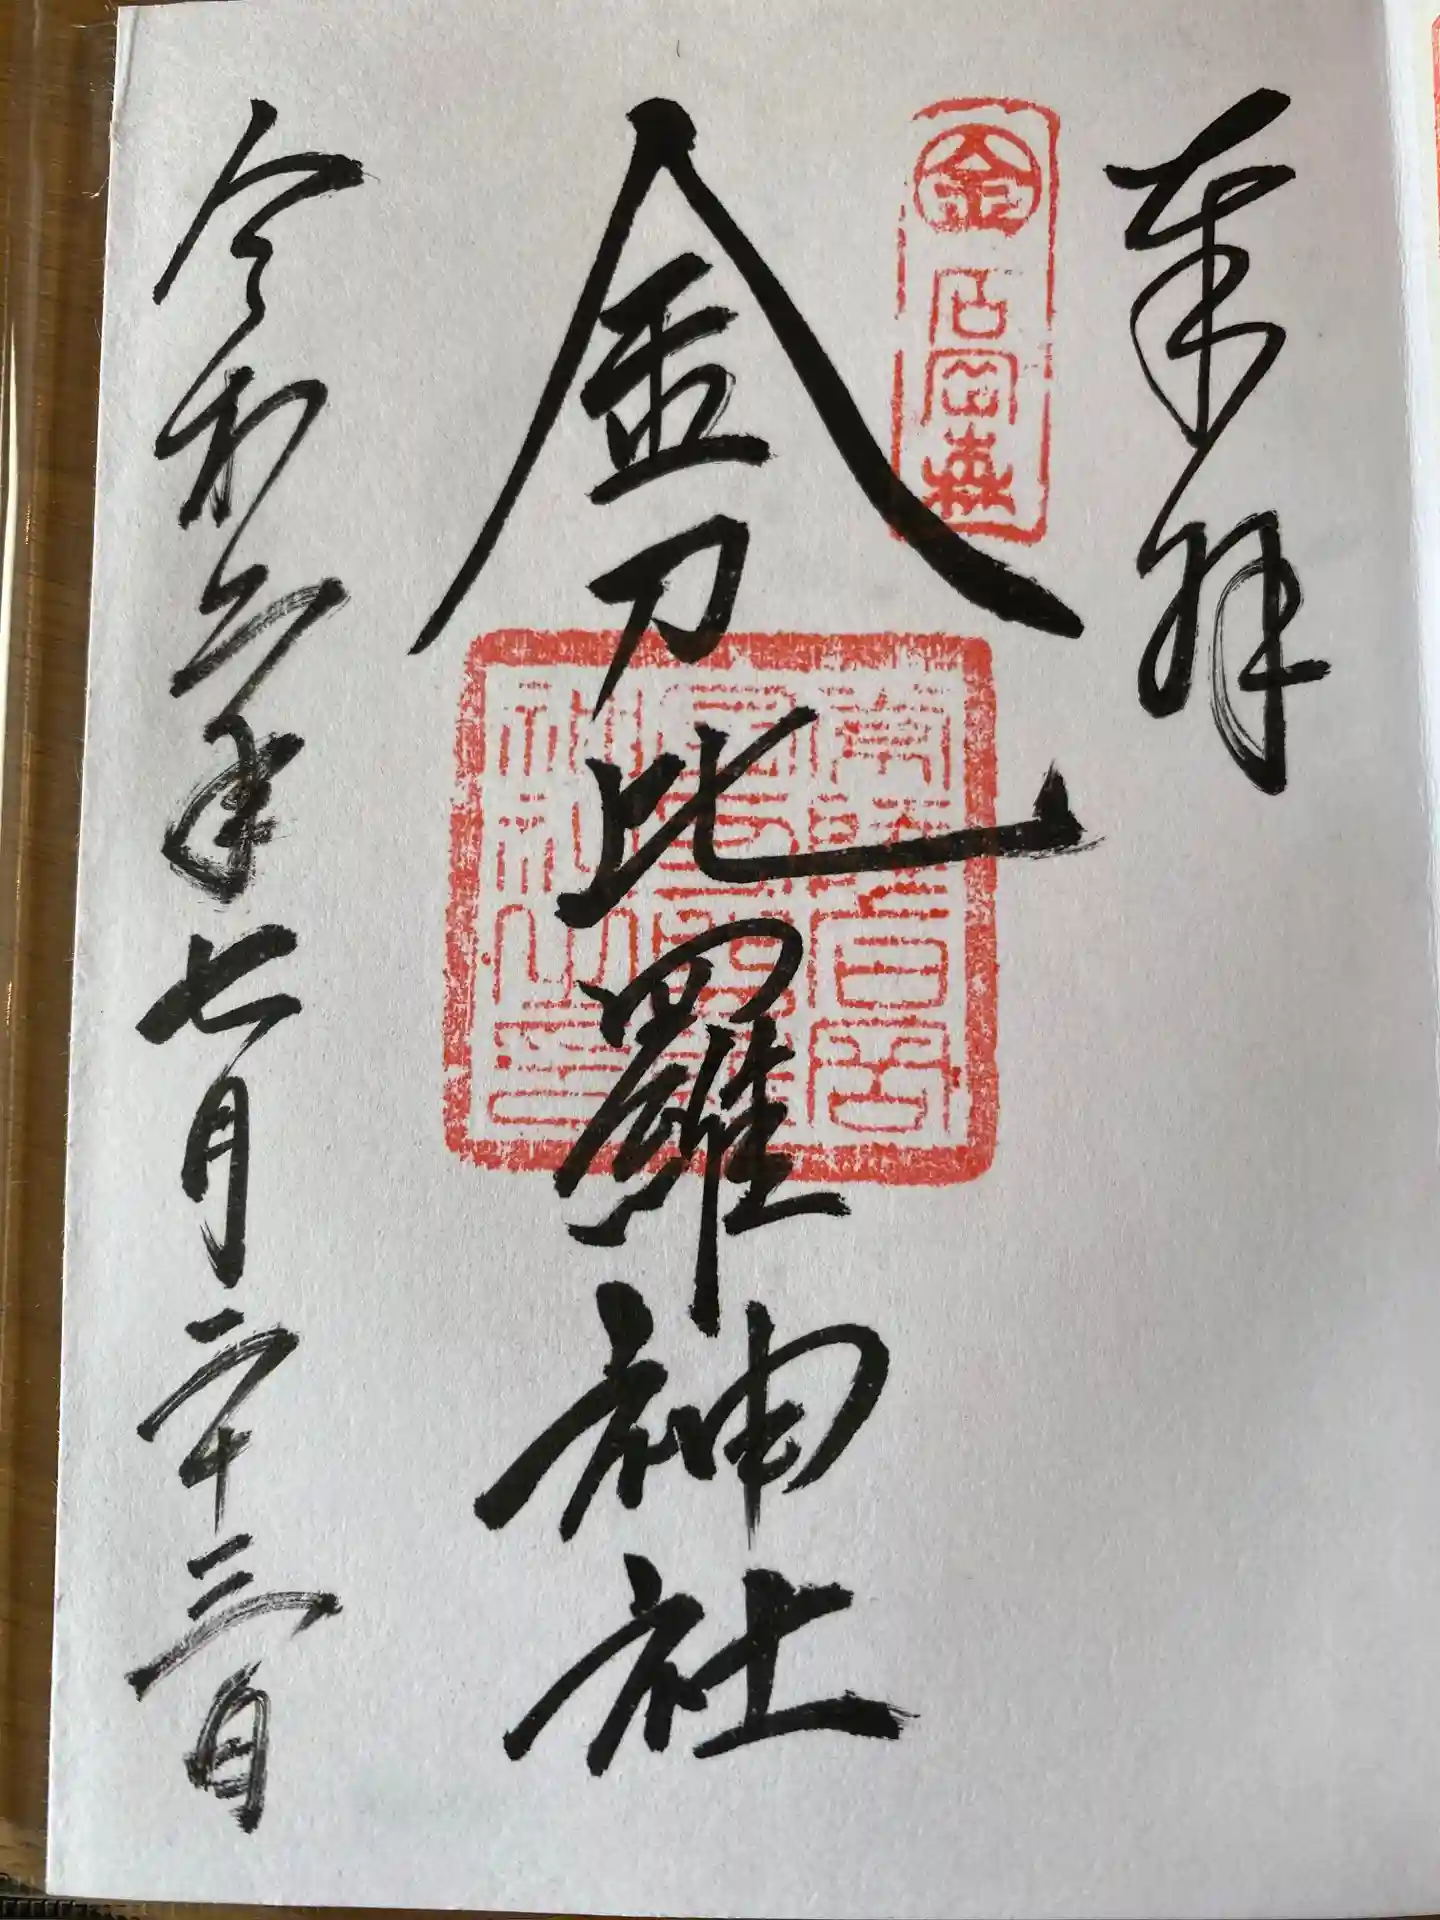 奉拝
金
金刀比羅神社
令和六年七月二十三日